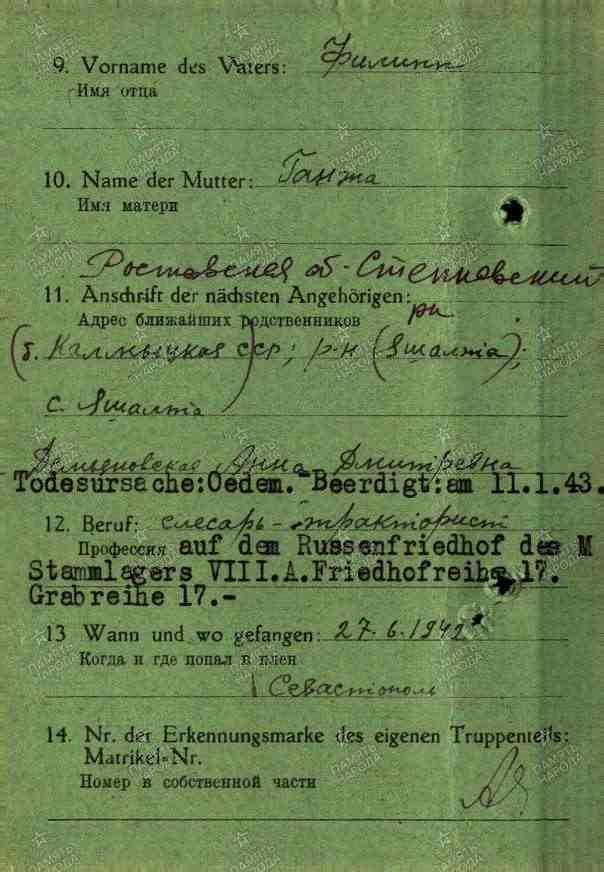 9. Vorname des Vaters: Филипп
Имя отца
10. Name der Mutter: Ганжа
Имя матери
Ростовская об. Степновский
11. Anschrift der nächsten Angehörigen: рн
Адрес ближайших родственников
(б. Калмыцкая ССР; р-н (Яшалта);
с. Яшалта
Демьяновская Анна Дмитревна
Todesursache:Oedem.-Beerdigt:am 11.1.43.
12. Beruf: слесарь-тракторист
Профессия auf dem Russenfriedhof des M
Stammlagers VIII.A.Friedhofreihe 17.
Grabreihe 17.-
13 Wann und wo gefangen: 27.6.1942
Когда и где попал в плен
Севастополь
14. Nr. der Erkennungsmarke des eigenen Truppenteils:
Matrikel-Nr.
Номер в собственной части